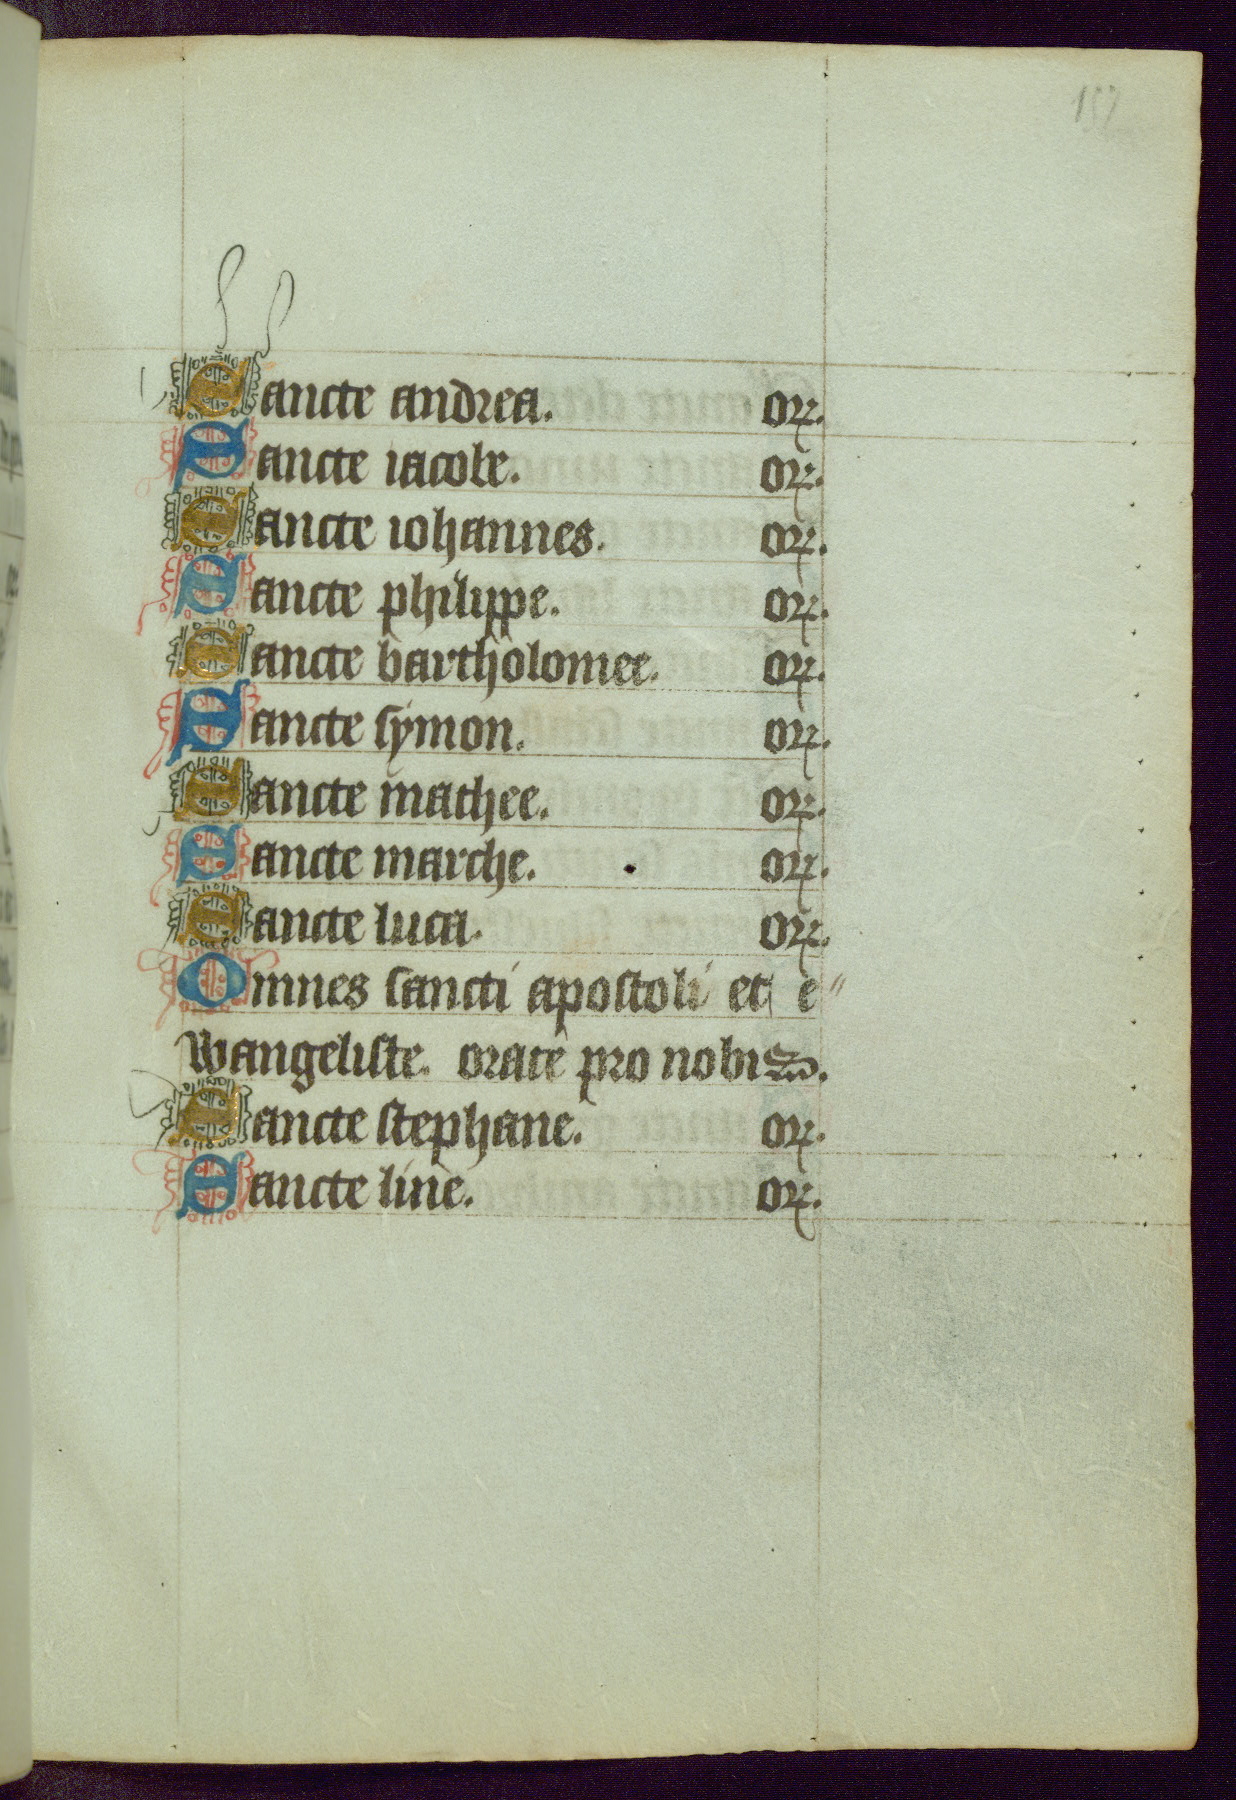 157
Sancte andrea. or.
Sancte iacobe. or.
Sancte iohannes. or.
Sancte philippe. or.
Sancte bartholomee. or.
Sancte symon. or.
Sancte mathee. or.
Sancte marche. or.
Sancte luca. or.
Omnes sancti apostoli et e
wangeliste. orate pro nobis.
Sancte stephane. or.
Sancte line. or.